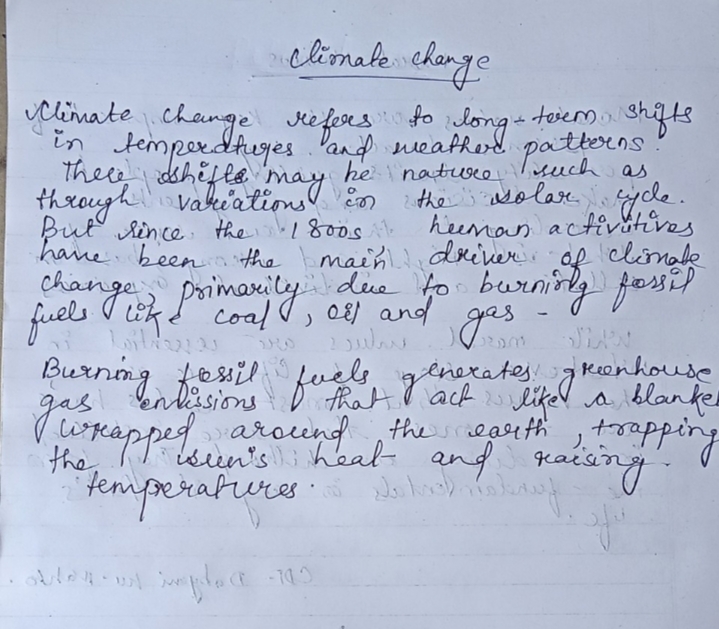 Climate change
Climate change refers to long-term shifts
in temperatures and weather patterns.
These shifts may be nature such as
through variations in the solar cycle.
But since the 1800s human activities
have been the main driver of climate
change, primarily due to burning fossil
fuels like coal, oil and gas -
Burning fossil fuels generates greenhouse
gas emissions that act like a blanket
wrapped around the earth, trapping
the sun's heat and raising.
temperatures.